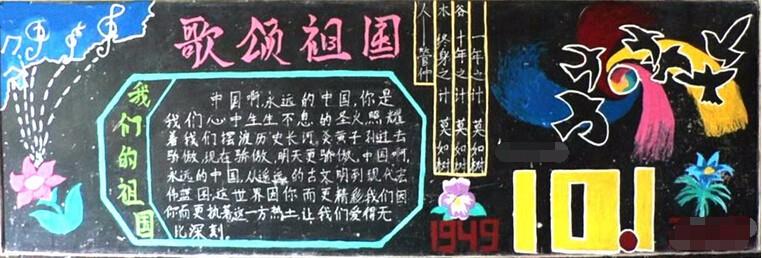 歌颂祖国
我们的祖国
中国啊,永远的中国,你是
我们心中生生不息的圣火,照耀
着我们摆渡历史长河。炎黄子孙过去
骄傲,现在骄傲,明天更骄傲。中国啊,
永远的中国,从遥远的古文明到现代宏
伟蓝图,这世界因你而更精彩,我们因
你而更执着这一方热土,让我们爱得无
比深刻。
一年之计 莫如树
谷 十年之计 莫如树
木 终身之计 莫如树
人——管仲
1949
10.1